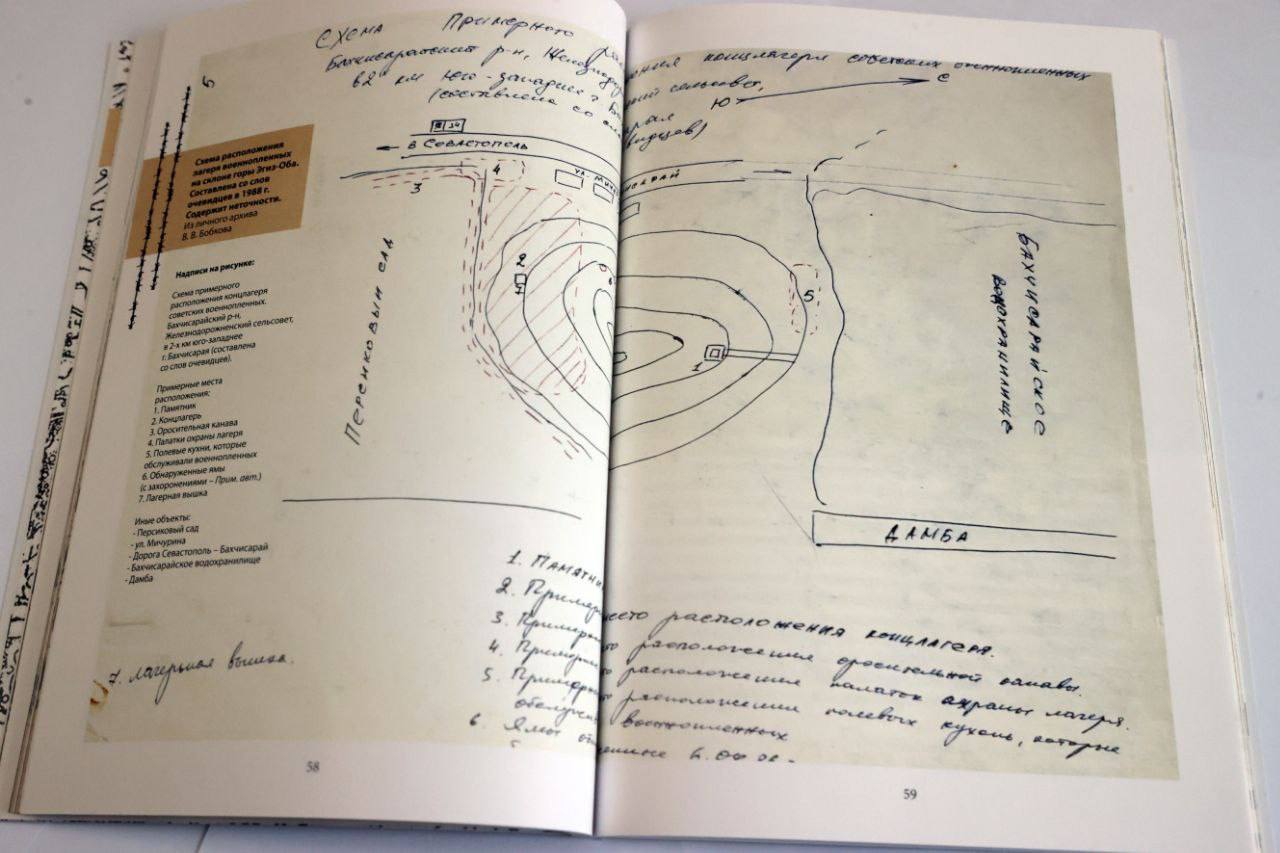 Схема Примерного
Бахчисарайский р-н,
в 2х км юго-западнее г.
(составлена со
концлагеря советских военнопленных
сельсовет,
Ю С
5
Схема расположения
лагеря военнопленных
на склоне горы Эгиз-Оба.
Составлена со слов
очевидцев в 1988 г.
Содержит неточности.
Из личного архива
В. В. Бобкова
Надписи на рисунке:
Схема примерного
расположения концлагеря
советских военнопленных.
Бахчисарайский р-н,
Железнодорожненский сельсовет,
в 2-х км юго-западнее
г. Бахчисарая (составлена
со слов очевидцев).
Примерные места
расположения:
1. Памятник
2. Концлагерь
3. Оросительная канава
4. Палатки охраны лагеря
5. Полевые кухни, которые
обслуживали военнопленных
6. Обнаруженные ямы
(с захоронениями – Прим. авт.)
7. Лагерная вышка
Иные объекты:
- Персиковый сад
- ул. Мичурина
- Дорога Севастополь – Бахчисарай
- Бахчисарайское водохранилище
- Дамба
в Севастополь
3
4
ул.
2
6
1
5
Персиковый сад
Бахчисарайское
водохранилище
ДАМБА
1. Памятни
2. Пример
место расположения концлагеря.
3. Пример
расположения оросительной канавы.
4. Пример
расположения палаток охраны лагеря.
5. Пример
расположения полевых кухонь, которые
военнопленных
6. Ямы
7. Лагерная вышка.
58
59